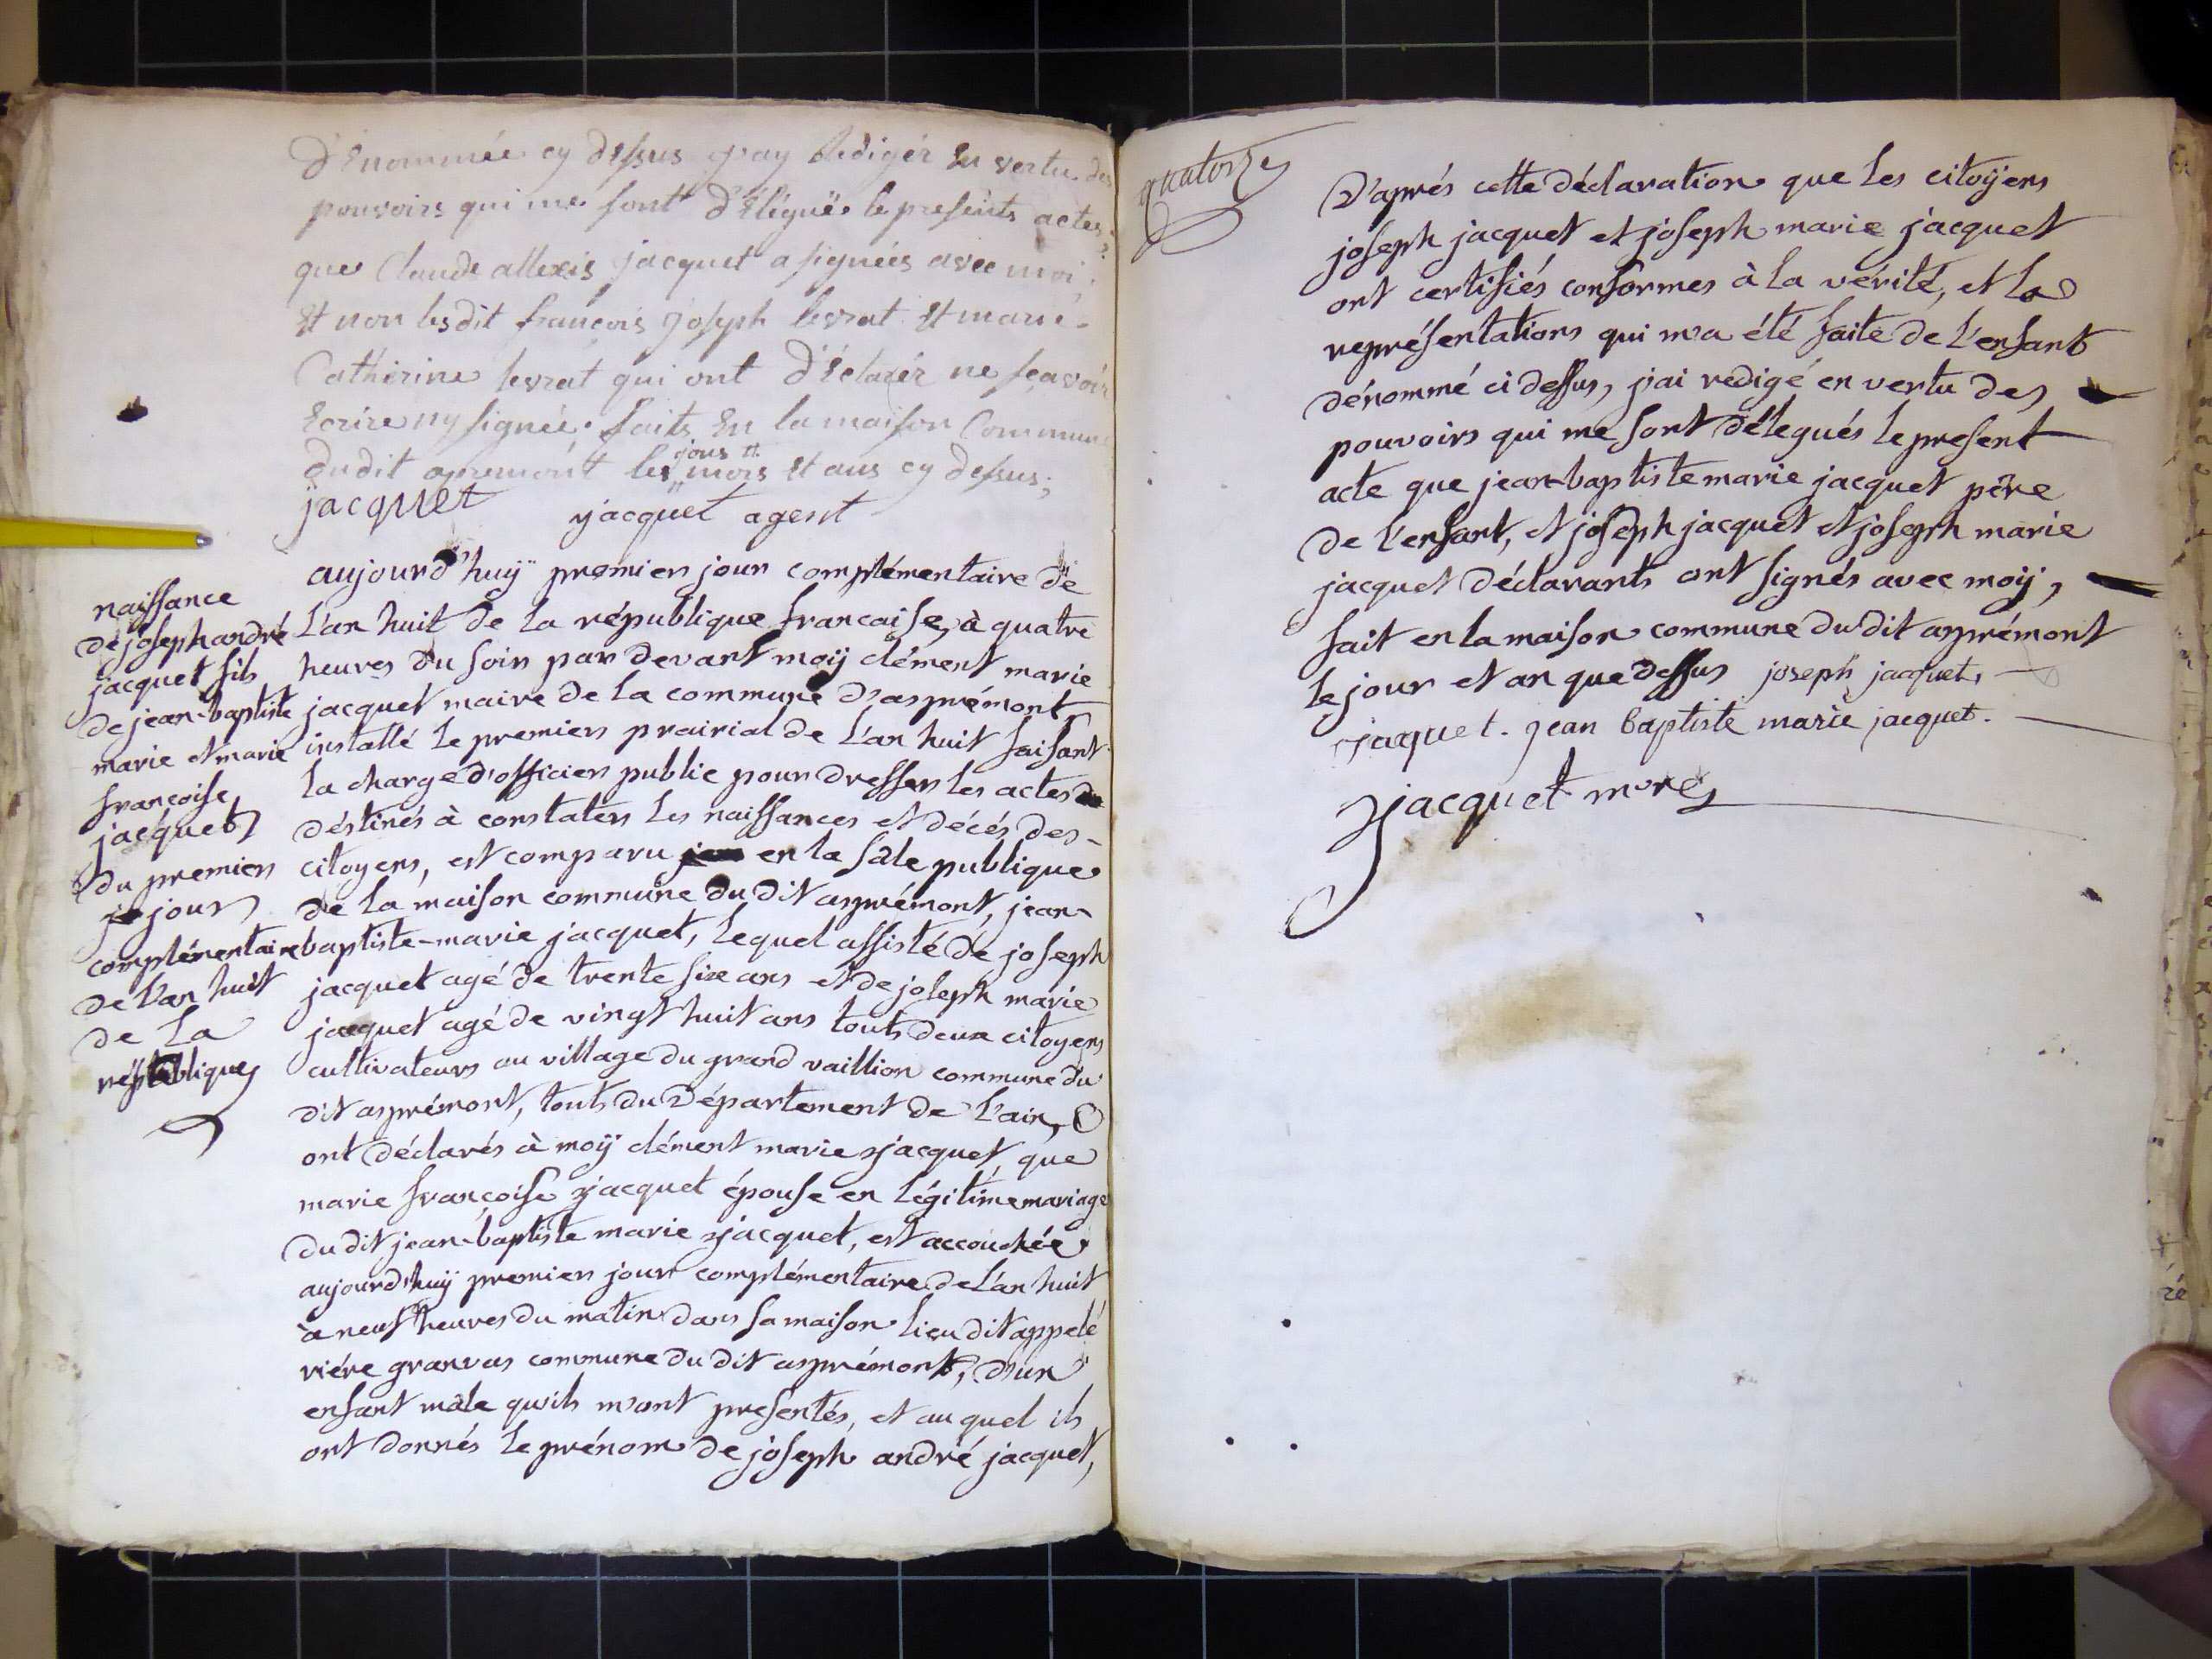 d'Enommée cy dessus j'ay Redigér En vertu des
pouvoirs qui me sont d'Elégués le présents actes
que Claude allexis jacquet a signées avec moi
Et non lesdit francois Joseph levrat Et marie
Catherine levrat qui ont d'Eclarér ne sçavoir
Ecrire ny signée. faits En la maison Commune
dudit apremont les jous et mois Et ans cy dessus;
jacquet jacquet agent
naissance
de joseph andré
jacquet fils
de jean-baptiste
marie et marie
françoise
jacquet
du premier
jour
complémentaire
de l'an huit
de la
république
aujourd'huÿ premier jour complémentaire de
L'an huit de la république francaise, à quatre
heures du soir par devant moÿ clément marie
jacquet maire de la commune d'asprémont
installé le premier prairial de L'an huit faisant
la charge d'officier public pour dresser les actes
déstinés à constater les naissances et décés des
citoyens, est comparu en la sâle publique
de la maison commune du dit asprémont, jean-
baptiste-marie jacquet, lequel assisté de joseph
jacquet agé de trente six ans et de joseph marie
jacquet agé de vingt huit ans touts deux citoyens
cultivateurs au village du grand vaillion commune du
dit asprémont, touts du département de l'ain,
ont déclarés à moÿ clément marie jacquet, que
marie françoise jacquet épouse en légitime mariage
du dit jean-baptiste marie jacquet, est accouchée
aujourd'huÿ premier jour complémentaire de L'an huit
à neuf heures du matin dans sa maison lieu dit appelé
riére granvas commune du dit asprémont, d'un
enfant mâle qu'ils m'ont presentés, et au quel ils
ont donnés le prénom de joseph andré jacquet,
quatorze
D'aprés cette déclaration que les citoÿens
joseph jacquet et joseph marie jacquet
ont certifiés conformes à la vérité, et la
représentations qui m'a été faite de l'enfant
dénommé ci dessus, j'ai redigé en vertu des
pouvoirs qui me sont délegués le present
acte que jean-baptiste marie jacquet pére
de l'enfant, et joseph jacquet et joseph marie
jacquet déclarants ont signés avec moÿ,
fait en la maison commune du dit asprémont
le jour et an que dessus joseph jacquet,
jacquet. jean baptiste marie jacquet.
jacquet mre